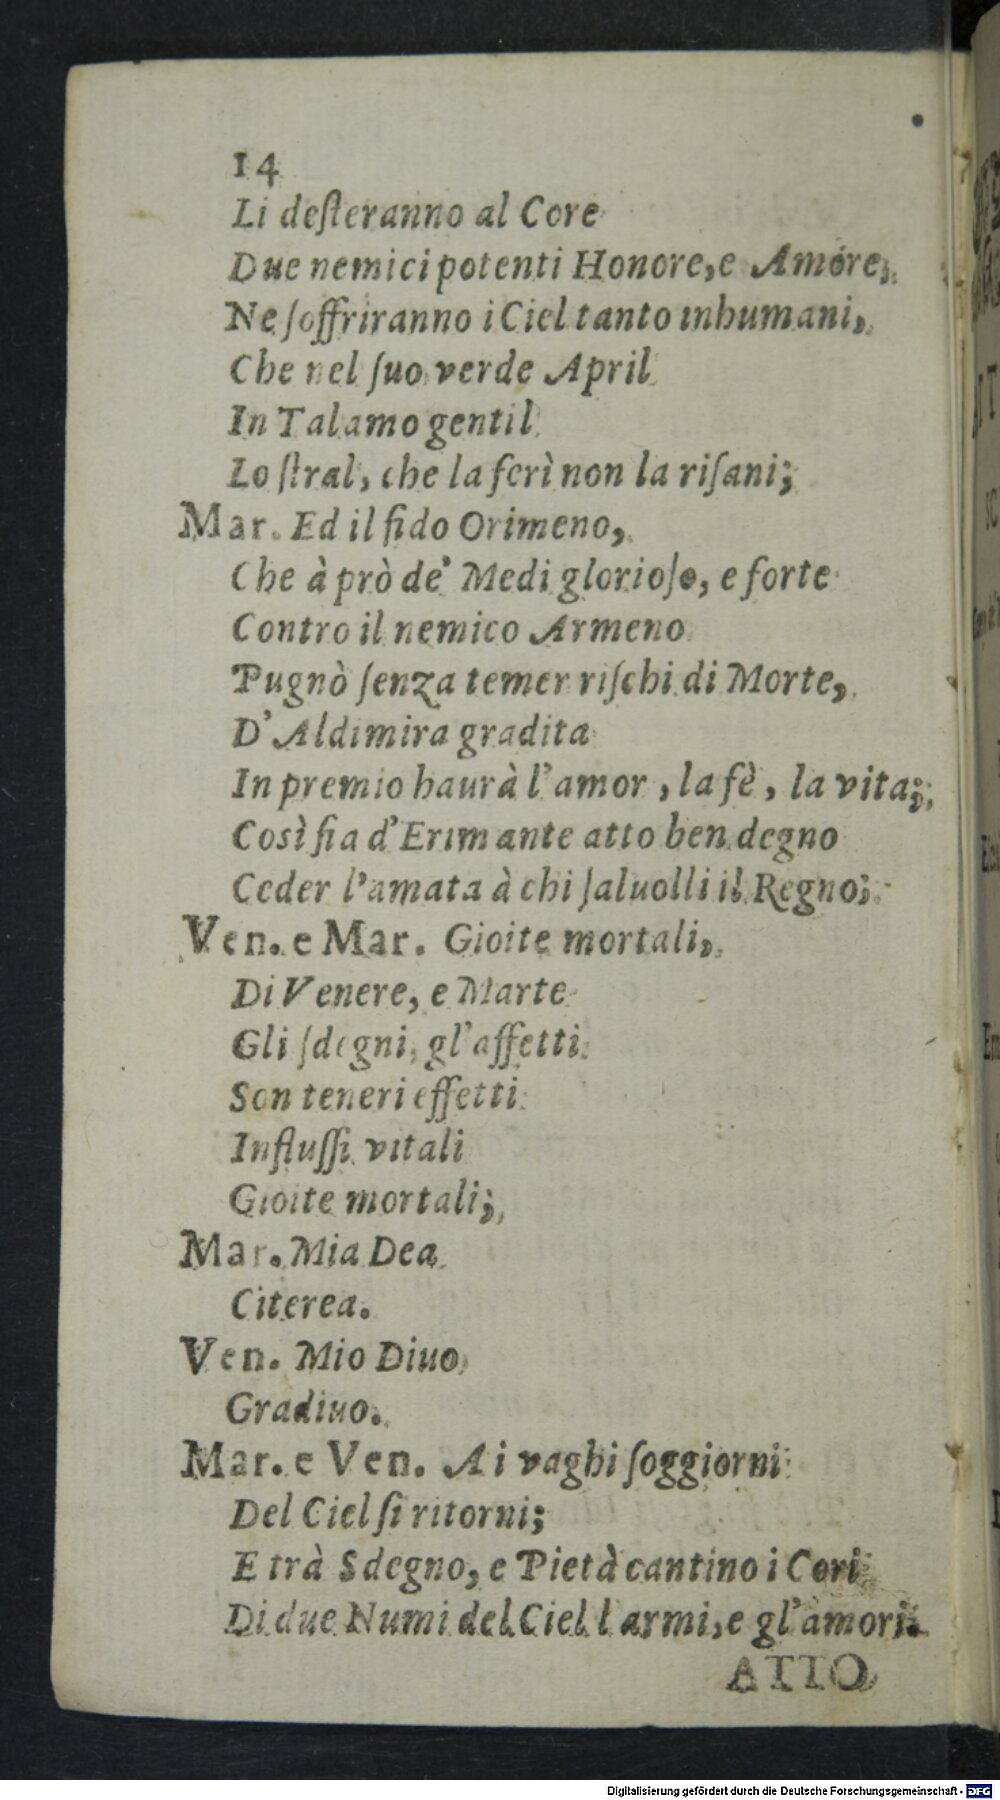 14
Li desteranno al Core
Due nemici potenti Honore, e Amore;
Ne soffriranno i Ciel tanto inhumani,
Che nel suo verde April
In Talamo gentil
Lo stral, che la ferì non la risani;
Mar. Ed il fido Orimeno,
Che à prò de' Medi glorioso, e forte
Contro il nemico Armeno
Pugnò senza temer rischi di Morte,
D'Aldimira gradita
In premio haurà l'amor, la fè, la vita;
Così fia d'Erimante atto ben degno
Ceder l'amata à chi saluolli il Regno;
Ven. e Mar. Gioite mortali,
Di Venere, e Marte
Gli sdegni, gl'affetti
Son teneri effetti
Influssi vitali
Gioite mortali;
Mar. Mia Dea
Citerea.
Ven. Mio Diuo
Gradiuo.
Mar. e Ven. A i vaghi soggiorni
Del Ciel si ritorni;
E trà Sdegno, e Pietà cantino i Cori
Di due Numi del Ciel l armi, e gl'amori.
ATTO
Digitalisierung gefördert durch die Deutsche Forschungsgemeinschaft - DFG